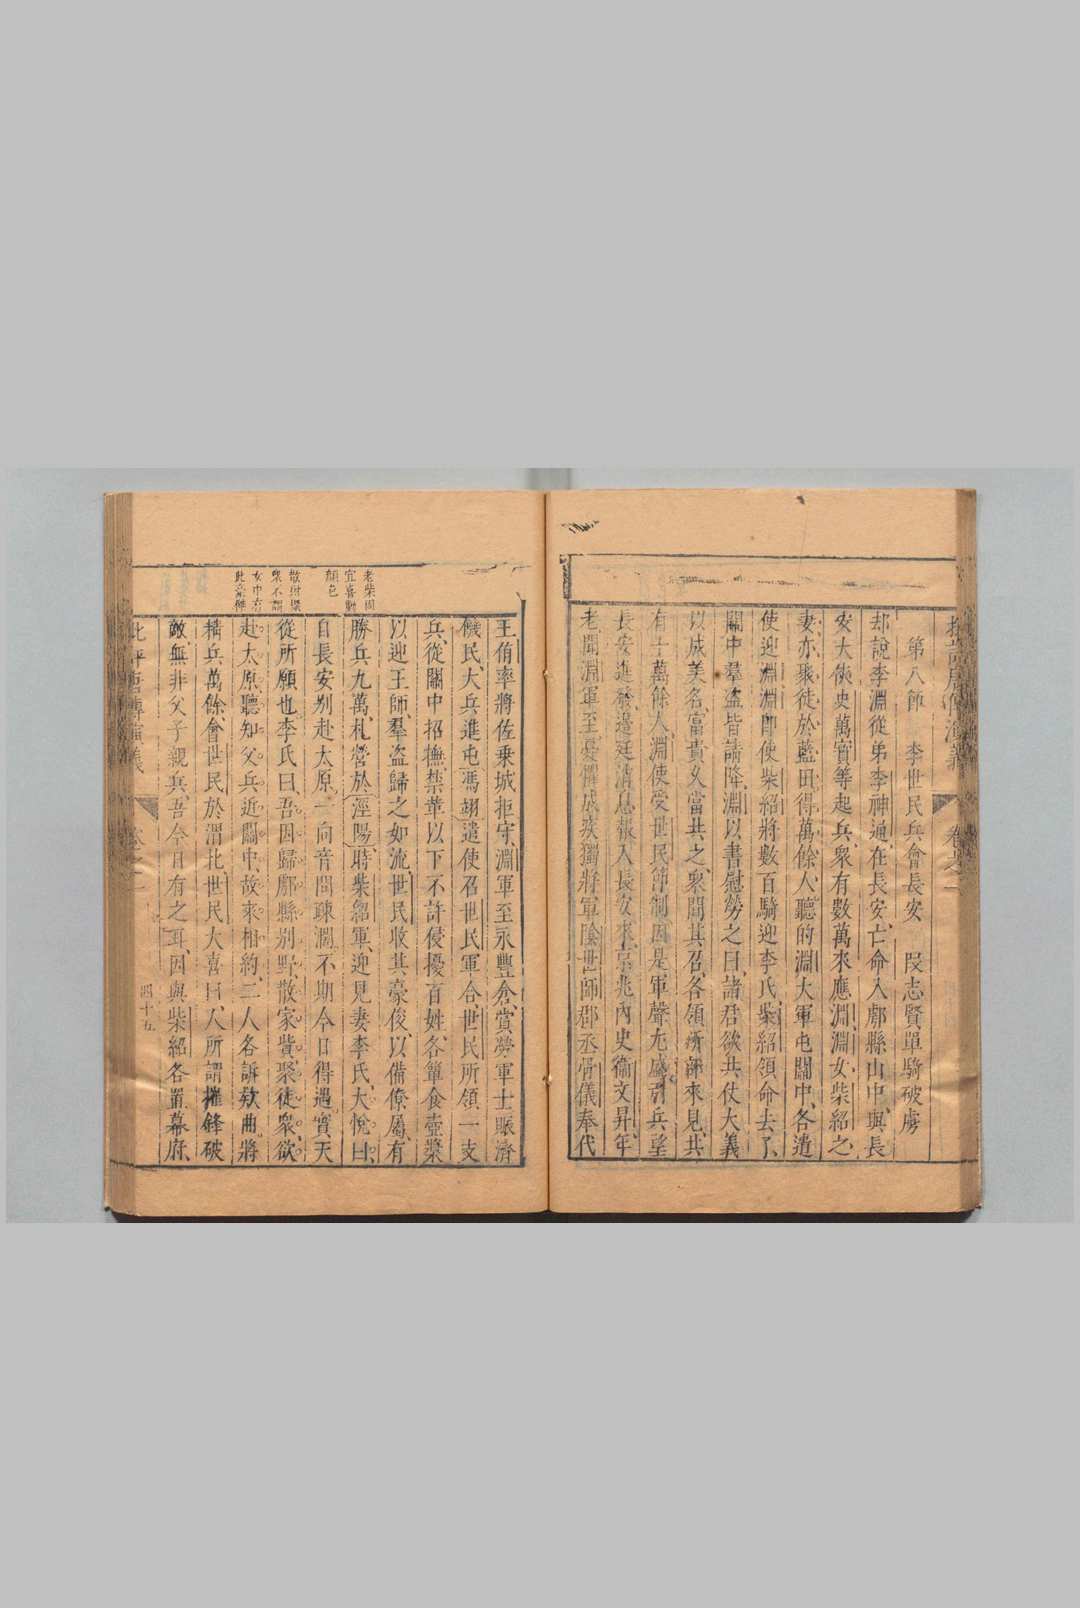 第八節　李世民兵會長安　段志賢單騎破虜
却說李淵從弟李神通在長安、亡命入鄠縣山中、與長
安大俠史萬寶等起兵、衆有數萬來應淵、淵女柴紹之
妻、亦聚徒於藍田、得萬餘人、聽的淵大軍屯關中、各遣
使迎淵、淵即使柴紹將數百騎迎李氏、柴紹領命去了、
關中羣盜皆請降、淵以書慰勞之曰、諸君欲共仗大義
以成美名、富貴久當共之、衆聞其召、各領所部來見、共
有十萬餘人、淵使受世民節制、因是軍聲尤盛、引兵望
長安進發、邊廷消息報入長安來、京兆內史衞文昇、年
老聞淵軍至、憂懼成疾、獨將軍陰世師郡丞骨儀奉代
王侑率將佐乗城拒守、淵軍至永豐倉、賞勞軍士賑濟
饑民、大兵進屯馮翊、遣使召世民軍合、世民所領一支
兵、從關中招撫禁革以下、不許侵擾百姓、各簞食壺漿
以迎王師、羣盗歸之如流、世民收其豪俊、以備僚屬、有
勝兵九萬、札營於涇陽、時柴紹軍、迎見妻李氏、大悅曰、
自長安别赴太原、一向音問疎濶、不期今日得遇、實天
從所願也、李氏曰、吾因歸鄠縣别野、散家貲、聚徒衆、欲
赴太原、聽知父兵近關中、故來相約、二人各訴欵曲、將
精兵萬餘、會世民於渭北、世民大喜曰、人所謂摧鋒破
敵、無非父子親兵、吾今日有之耳、因與柴紹各置幕府、
老柴回
宜喜動
顔色
散財聚
衆不謂
女中有
此豪傑
四十五